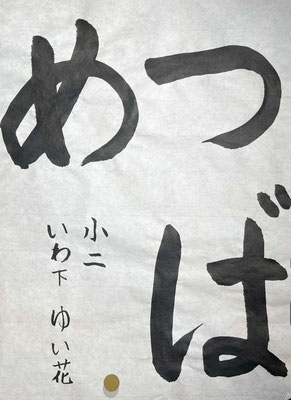 つば
め
小二
いわ下 ゆい花